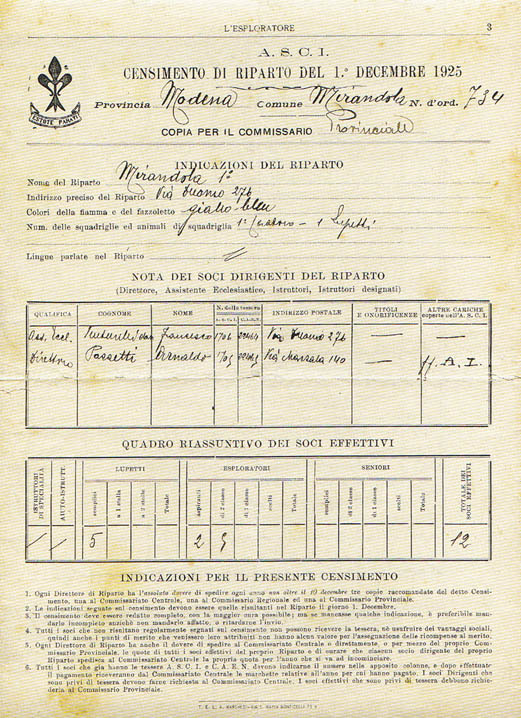 L'ESPLORATORE 3
A. S. C. I.
CENSIMENTO DI RIPARTO DEL 1.° DECEMBRE 1925
Provincia Modena Comune Mirandola N. d'ord. 734
ESTOTE PARATI
COPIA PER IL COMMISSARIO Provinciale
INDICAZIONI DEL RIPARTO
Nome del Riparto Mirandola 1°
Indirizzo preciso del Riparto Via Duomo 276
Colori della fiamma e del fazzoletto giallo-bleu
Num. delle squadriglie ed animali di squadriglia 1 Lupetti
Lingue parlate nel Riparto
NOTA DEI SOCI DIRIGENTI DEL RIPARTO
(Direttore, Assistente Ecclesiastico, Istruttori, Istruttori designati)
QUALIFICA COGNOME NOME N. della tessera A.S.C.I. C.I.A.E.N. INDIRIZZO POSTALE TITOLI E ONORIFICENZE ALTRE CARICHE coperte nell'A. S. C. I.
Ass. Eccl. Francesco Via Duomo 276 —
Direttore Passetti Arnaldo Via Marsala 140 — A. I.
QUADRO RIASSUNTIVO DEI SOCI EFFETTIVI
ISTRUTTORI DI SPECIALITÀ AIUTO-ISTRUTT. LUPETTI ESPLORATORI SENIORI TOTALE DEI SOCI EFFETTIVI
semplici a 1 stella a 2 stelle Totale aspiranti di 2 classe di 1 classe scelti Totale semplici di 2 classe di 1 classe scelti Totale
/ / 5 2 5 12
INDICAZIONI PER IL PRESENTE CENSIMENTO
1. Ogni Direttore di Riparto ha l'assoluto dovere di spedire ogni anno non oltre il 10 decembre tre copie raccomandate del detto Censimento, una al Commissariato Centrale, una al Commissario Regionale ed una al Commissario Provinciale.
2. Le indicazioni segnate sul censimento devono essere quelle risultanti nel Riparto il giorno 1. Decembre.
3. Il censimento deve essere redatto completo, con la maggior cura possibile; ma se mancasse qualche indicazione, è preferibile mandarlo incompiuto anzichè non mandarlo affatto, o ritardarne l'invio.
4. Tutti i soci che non risultano regolarmente segnati sul censimento non possono ricevere la tessera, nè usufruire dei vantaggi sociali, quindi anche i punti di merito che vertessero loro attribuiti non hanno alcun valore per l'assegnazione delle ricompense al merito.
5. Ogni Direttore di Riparto ha anche il dovere di spedire al Commissariato Centrale o direttamente, o per mezzo del proprio Commissario Provinciale, le quote di tutti i soci effettivi del proprio Riparto e di curare che ciascun socio dirigente del proprio Riparto spedisca al Commissariato Centrale la propria quota per l'anno che si va ad incominciare.
6. Tutti i soci che già hanno le tessera A. S. C. I. e C. I. A. E. N. devono indicarne il numero nelle apposite colonne, e dopo effettuato il pagamento riceveranno dal Commissariato Centrale le marchette relative all'anno per cui hanno pagato. I Soci Dirigenti che sono privi di tessera devono farne richiesta al Commissariato Centrale. I soci effettivi che sono privi di tessera debbono richiederla al Commissario Provinciale.